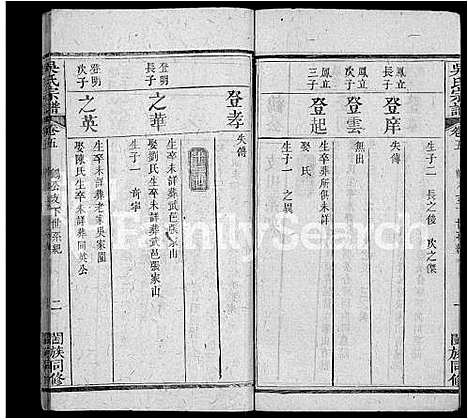 吳氏宗譜
卷五
一
閤族同修
生子二 長之俊 次之傑
鳳立
長子
登庠
失傳
鳳立
次子
登雲
無出
鳳立
三子
登起
生卒葬所俱未詳
娶 氏
生子一 之異
登孝
失傳
登明
長子
之華
生卒未詳葬武邑張家山
娶劉氏生卒未詳葬武邑張家山
生子一
登明
次子
之英
生卒未詳葬
娶陳氏生卒未詳葬同英公
吳氏宗譜
卷五
下世系
二
閤族同修
FamilySearch